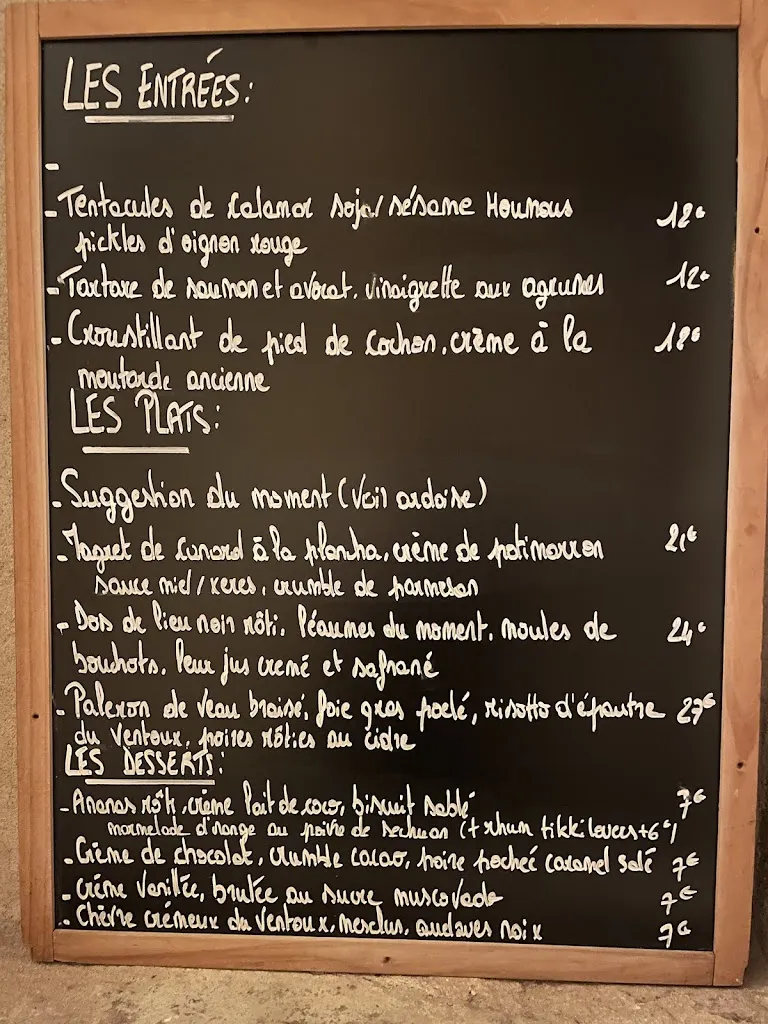 LES ENTRÉES:
-
- Tentacules de Calamar soja/sésame Houmous 12€
pickles d'oignon rouge
- Tartare de saumon et avocat, vinaigrette aux agrumes 12€
- Croustillant de pied de cochon, crème à la 12€
moutarde ancienne
LES PLATS:
- Suggestion du moment (Voir ardoise)
- Magret de Canard à la plancha, crème de potimarron 21€
sauce miel/xeres, crumble de parmesan
- Dos de lieu noir rôti, légumes du moment, moules de 24€
bouchots, leur jus crémé et safrané
- Paleron de Veau braisé, foie gras poelé, risotto d'épautre 27€
du Ventoux, poires rôties au cidre
LES DESSERTS:
- Ananas rôti, crème lait de coco, biscuit sablé 7€
marmelade d'orange au poivre de sechuan (+ rhum tikki lovers +6€)
- Crème de chocolat, crumble cacao, poire pochée caramel salé 7€
- Crème Vanillée, brulée au sucre muscovado 7€
- Chèvre crémeux du Ventoux, mesclun, noix 7€